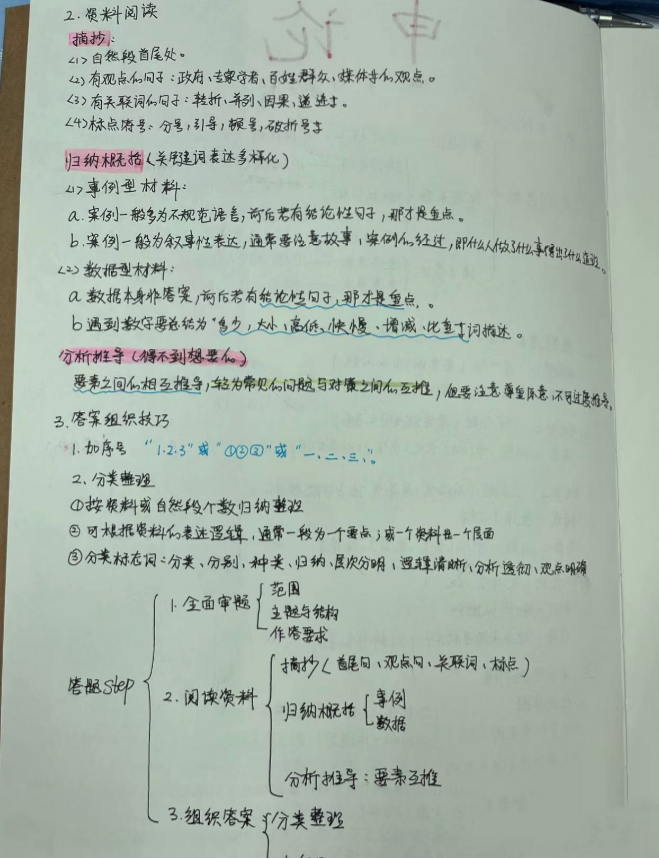 申论
2. 资料阅读
摘抄:
<1> 自然段首尾处。
<2> 有观点的句子:政府、专家学者、百姓群众、媒体等的观点。
<3> 有关联词的句子:转折、并列、因果、递进等。
<4> 标点符号:分号,引导,顿号,破折号等
归纳概括(关键词表达多样化)
<1> 事例型材料:
a. 案例一般多为不规范语言,前后若有结论性句子,那才是重点。
b. 案例一般为叙事性表达,通常要注意故事、案例的经过,即什么人做了什么事得出什么
<2> 数据型材料:
a 数据本身非答案,前后若有结论性句子,那才是重点。
b 遇到数字要总结为“多少、大小、高低、快慢、增减、比重”等词描述。
分析推导(得不到想要的)
要素之间的相互推导,较为常见的问题与对策之间的互推,但要注意尊重原意,不可过度推导。
3. 答案组织技巧
1. 加序号 “1.2.3”或“①②③”或“一、二、三、”。
2. 分类整理
①按资料或自然段个数归纳整理
②可根据资料的表达逻辑,通常一段为一个要点;或一个资料一个层面
③分类标志词:分类、分别、种类、归纳、层次分明、逻辑清晰、分析透彻、观点明确
答题step
1. 全面审题
范围
主题与结构
作答要求
2. 阅读资料
摘抄(首尾句、观点句、关联词、标点)
归纳概括
事例
数据
分析推导:要素互推
3. 组织答案
分类整理